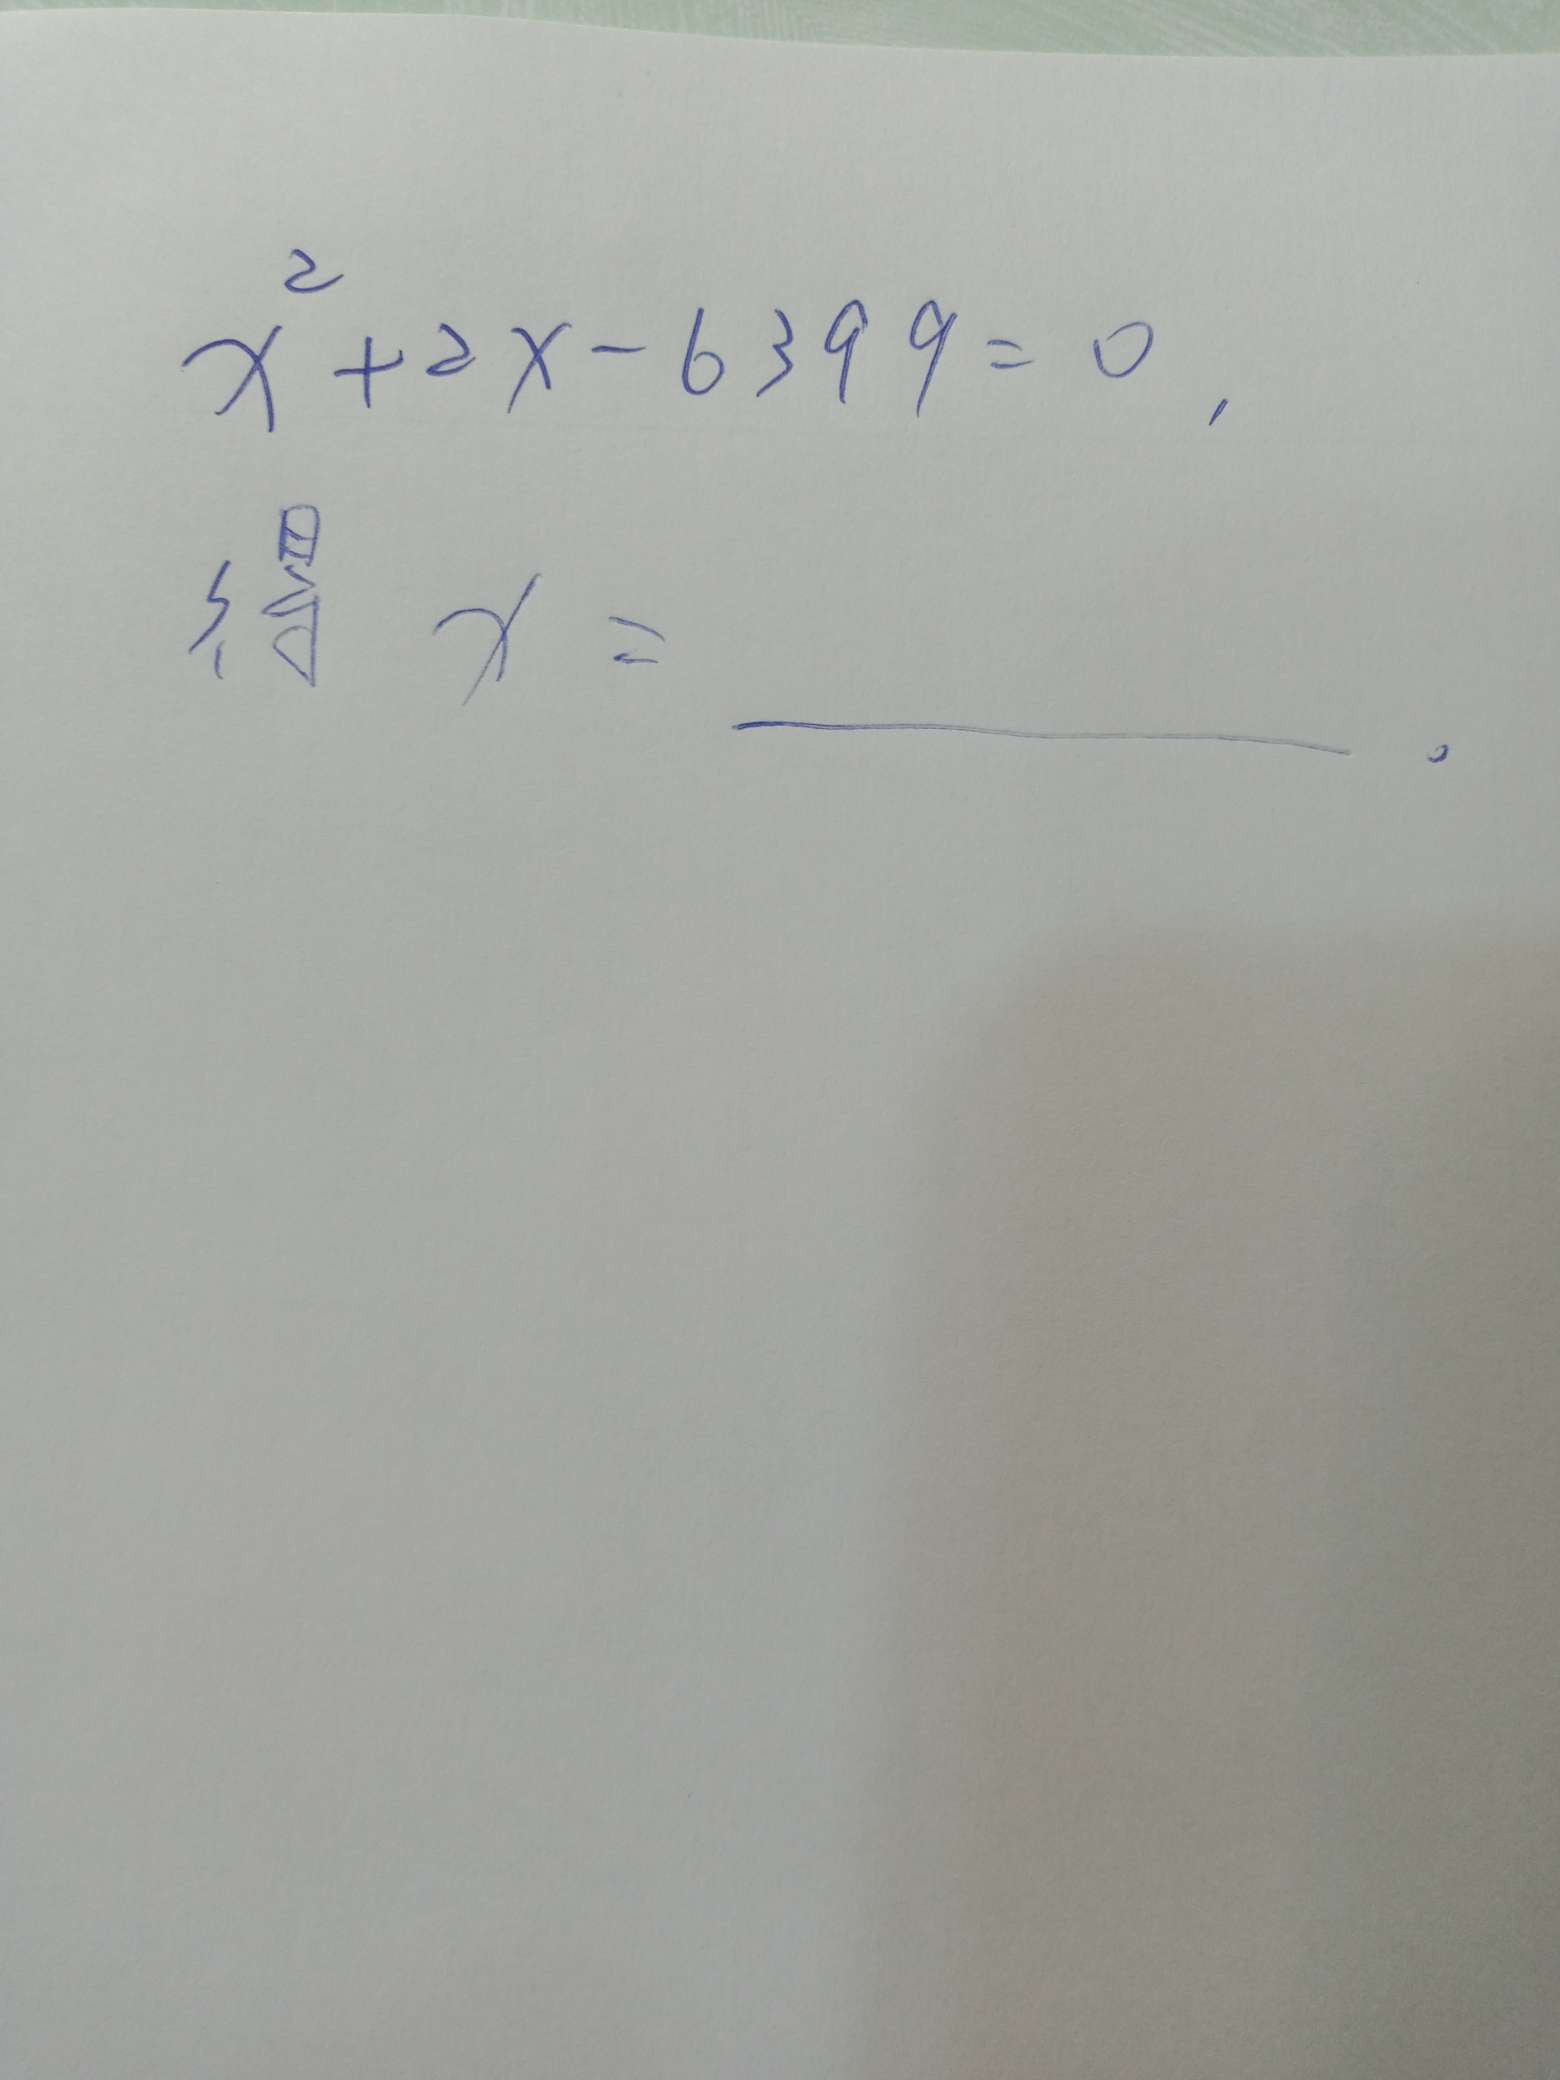 x²+2x-6399=0,
得 x=______.